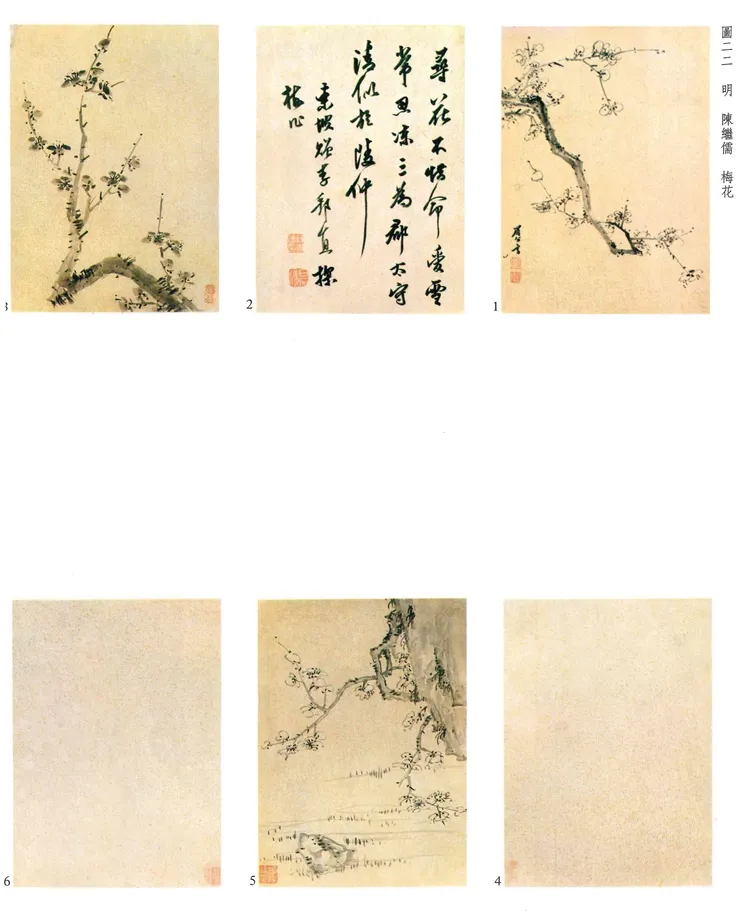 圖二二 明 陳繼儒 梅花
眉公
1
尋花不惜命愛雪
常忍凍三為郡太守
清似於陵仲
東坡贈李邦直探
梅作
2
3
4
5
6